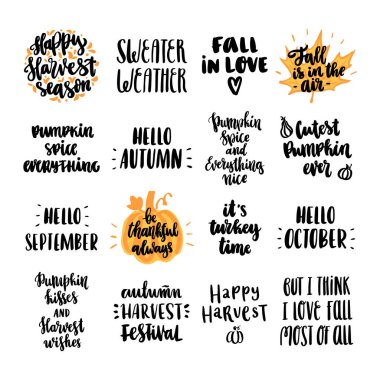 Happy
Harvest
season
SWEATER
WEATHER
FALL
IN LOVE
Fall
is in the
air
Pumpkin
spice
everything
HELLO
AUTUMN
Pumpkin
Spice
and
Everything
nice
Cutest
Pumpkin
ever
HELLO
SEPTEMBER
be
thankful
always
it's
turkey
time
HELLO
OCTOBER
Pumpkin
kisses
AND
Harvest
wishes
autumn
HARVEST
FESTIVAL
Happy
Harvest
BUT I THINK
I LOVE FALL
MOST OF ALL